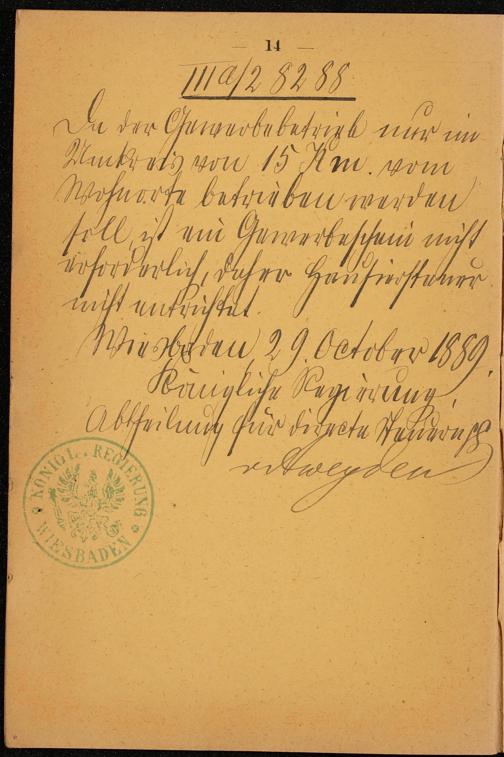 — 14 —
III a/2 8288
Da der Gewerbebetrieb nur im
Umkreis von 15 Km. vom
Wohnorte betrieben werden
soll, ist ein Gewerbeschein nicht
erforderlich, daher Hausiersteuer
nicht entrichtet.
Wiesbaden 29. October 1889.
Königliche Regierung,
Abtheilung für directe Steuern
KÖNIGL. REGIERUNG
WIESBADEN